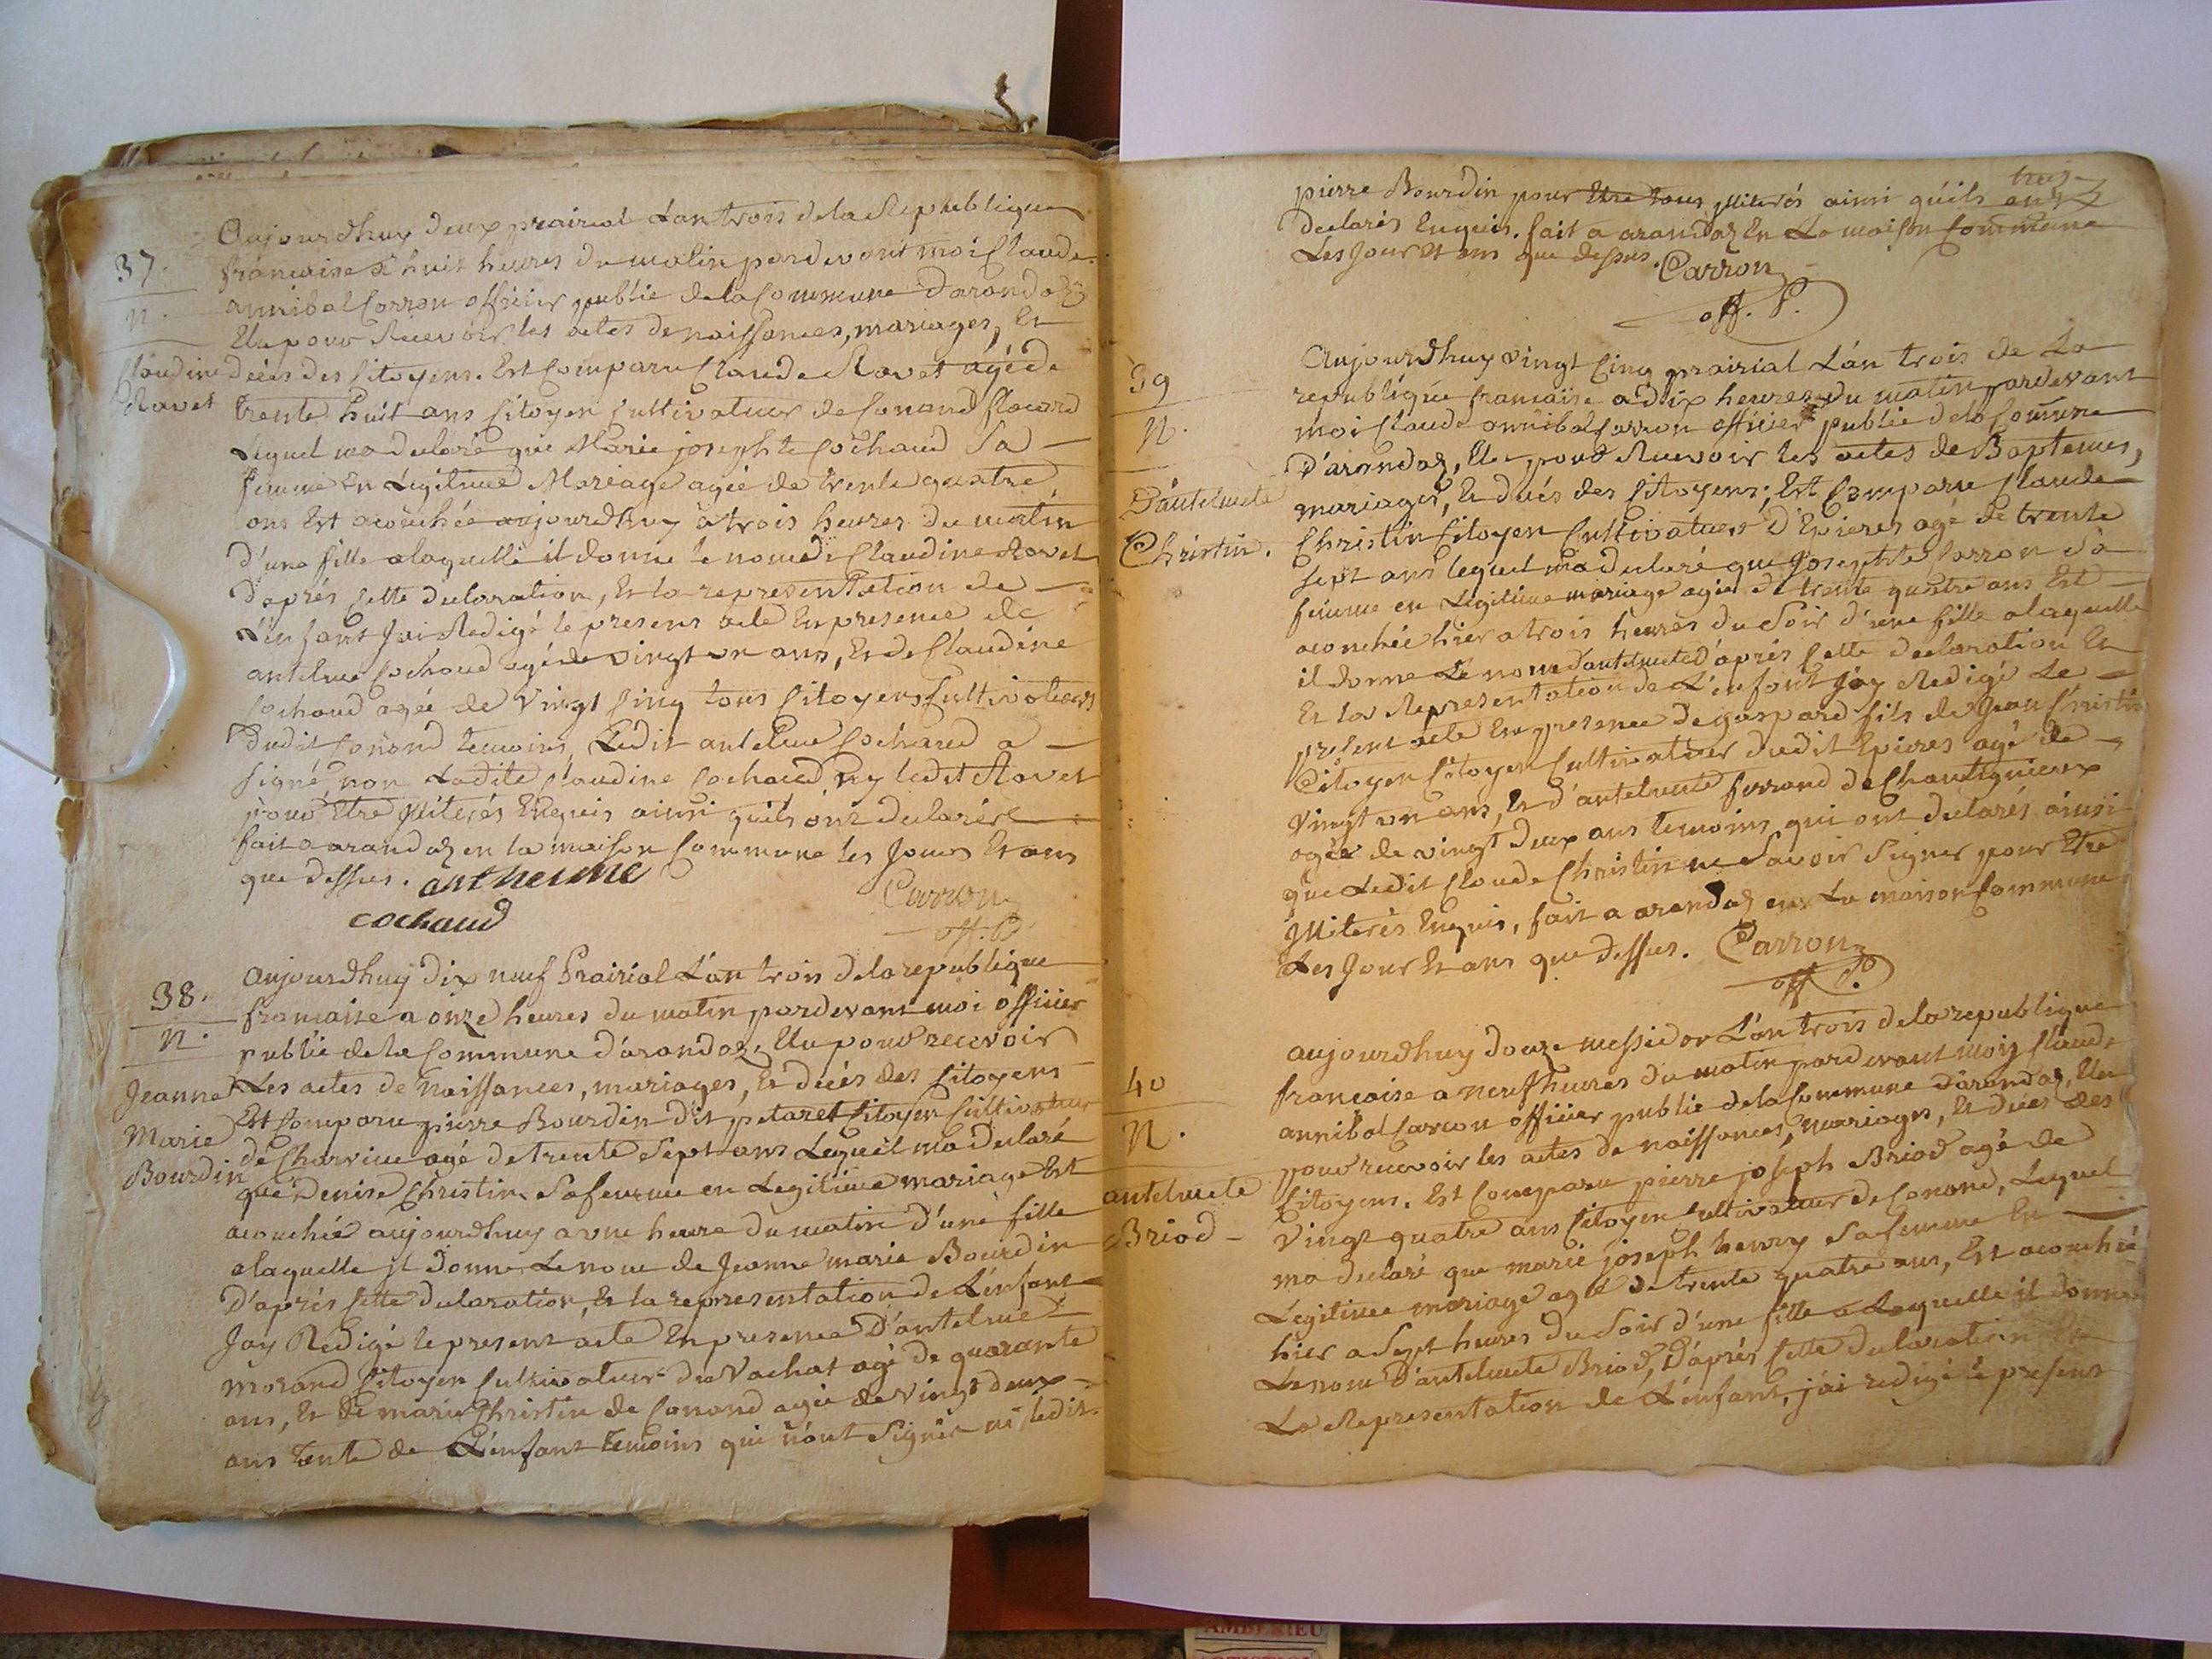 37.
n.
Claudine
Ravet
Aujourdhuy deux prairial L'an trois de la Republique
francaise a huit heures du matin pardevant moi Claude
annibal Carron officier public de la Commune darandaz
Elu pour Recevoir les actes de naissances, mariages, Et
décés des Citoyens. Est Comparu Claude Ravet agé de
trente huit ans Citoyen Cultivateur de Conand
Lequel ma declaré que Marie josephte Cochaud Sa
femme En Legitime Mariage agée de trente quatre
ans Est acouchée aujourdhuy a trois heures du matin
d'une fille alaquelle il donne le nom de Claudine Ravet
d'aprés Cette declaration, Et la representation de
L'enfant Jai Redigé le present acte En presence de
antelme Cochaud agé de vingt un ans, Et de Claudine
Cochaud agée de Vingt Cinq tous Citoyens Cultivateurs
dudit Conand temoins, Ledit antelme Cochaud a
signé, non Ladite Claudine Cochaud ny ledit Ravet
pour Etre illiterés Enquis ainsi quils ont declaré
fait a arandaz en la maison Commune les Jour Et ans
que dessus. anthelme
cochaud
Carron
off. P.
38.
n.
Jeanne
Marie
Bourdin
Aujourdhuy dix neuf Prairial L'an trois dela republique
francaise a onze heures du matin pardevant moi officier
public dela Commune d'arandaz, Elu pour recevoir
Les actes de Naissances, mariages, Et décés des Citoyens
Est Comparu pierre Bourdin dit petaret Citoyen Cultivateur
de Charvieu agé de trente Sept ans Lequel ma declaré
que denise Christin Sa femme en Legitime mariage Est
acouchée aujourdhuy a une heure du matin d'une fille
alaquelle il donne Le nom de Jeanne marie Bourdin
D'aprés Cette declaration, Et la representation de L'enfant
Jay Redigé le present acte En presence D'antelme
morand Citoyen Cultivateur du Vachat agé de quarante
ans, Et de marie Christin de Conand agée de vingt deux
ans tente de L'enfant temoins qui n'ont Signés ni ledit
pierre Bourdin pour Etre tous illiterés ainsi quils ont
declarés Enquis. fait a arandaz En La maison Commune
Les Jour et ans que dessus. Carron
off. P.
39
N.
D'antelmete
Christin.
Aujourdhuy vingt Cinq prairial L'an trois de La
republique francaise a dix heures du matin pardevant
moi Claude annibal Carron officier public dela Commune
D'arandaz, Elu pour Recevoir les actes de Baptemes,
mariages, Et décés des Citoyens; Est Comparu Claude
Christin Citoyen Cultivateur d'Epieres agé de trente
sept ans lequel ma declaré que Josephte Carron Sa
femme en Legitime mariage agée de trente quatre ans Est
acouchée hier a trois heures du Soir d'une fille alaquelle
il donne Le nom d'antelmete d'aprés Cette declaration Et
Et la Representation de L'enfant Jay Redigé Le
present acte En presence de gaspard fils de Jean Cristin
Citoyen Citoyen Cultivateur dudit Epieres agé de
vingt un ans, Et d'antelmete ferrand de Chantignieux
agée de vingt deux ans temoins qui ont declarés ainsi
que Ledit Claude Christin ne Savoir Signer pour Etre
illiterés Enquis, fait a arandaz en La maison Commune
Les Jour Et ans que dessus. Carron
off P.
40
N.
antelmete
Briod
aujourdhuy douze messidor L'an trois dela republique
francaise a neuf heures du matin pardevant moy Claude
annibal Carron officier public dela Commune d'arandaz, Elu
pour recevoir les actes de naissances, mariages, Et décés des
Citoyens. Est Comparu pierre joseph Briod agé de
Vingt quatre ans Citoyen Cultivateur de Conand, Lequel
ma declaré que marie joseph henry Sa femme En
Legitime mariage agée de trente quatre ans, Est acouchée
hier a Sept heures du Soir d'une fille a Laquelle il donne
Le nom D'antelmete Briod, D'aprés Cette declaration Et
La Representation de L'enfant, j'ai redigé le present
AMBERIEU